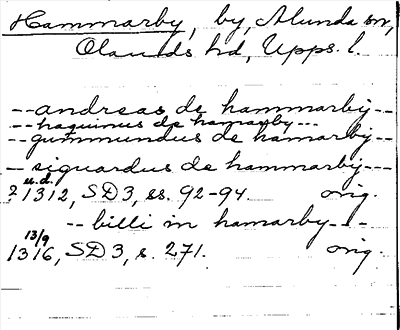 Hammarby, by, Alunda sn,
Olands hd, Upps. l.
-- andreas de hammarby --
-- haquinus de hamarby ---
-- gummundus de hamarby --
-- siguardus de hammarby ---
u.d.
? 1312, SD 3, ss. 92-94. orig.
-- billi in hamarby ---
13/9
1316, SD 3, s. 271. orig.